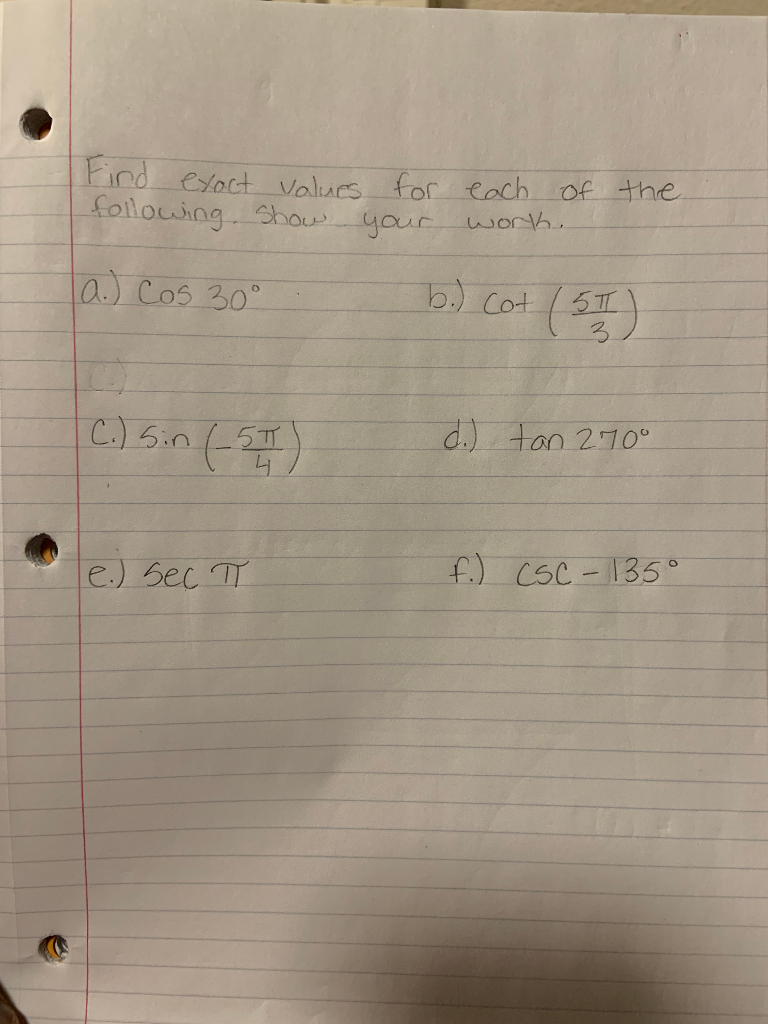 Find exact values for each of the
following. Show your work.
a.) Cos 30° b.) Cot (5π/3)
C.)
C.) Sin (-5π/4) d.) tan 270°
e.) Sec π f.) CSC -135°